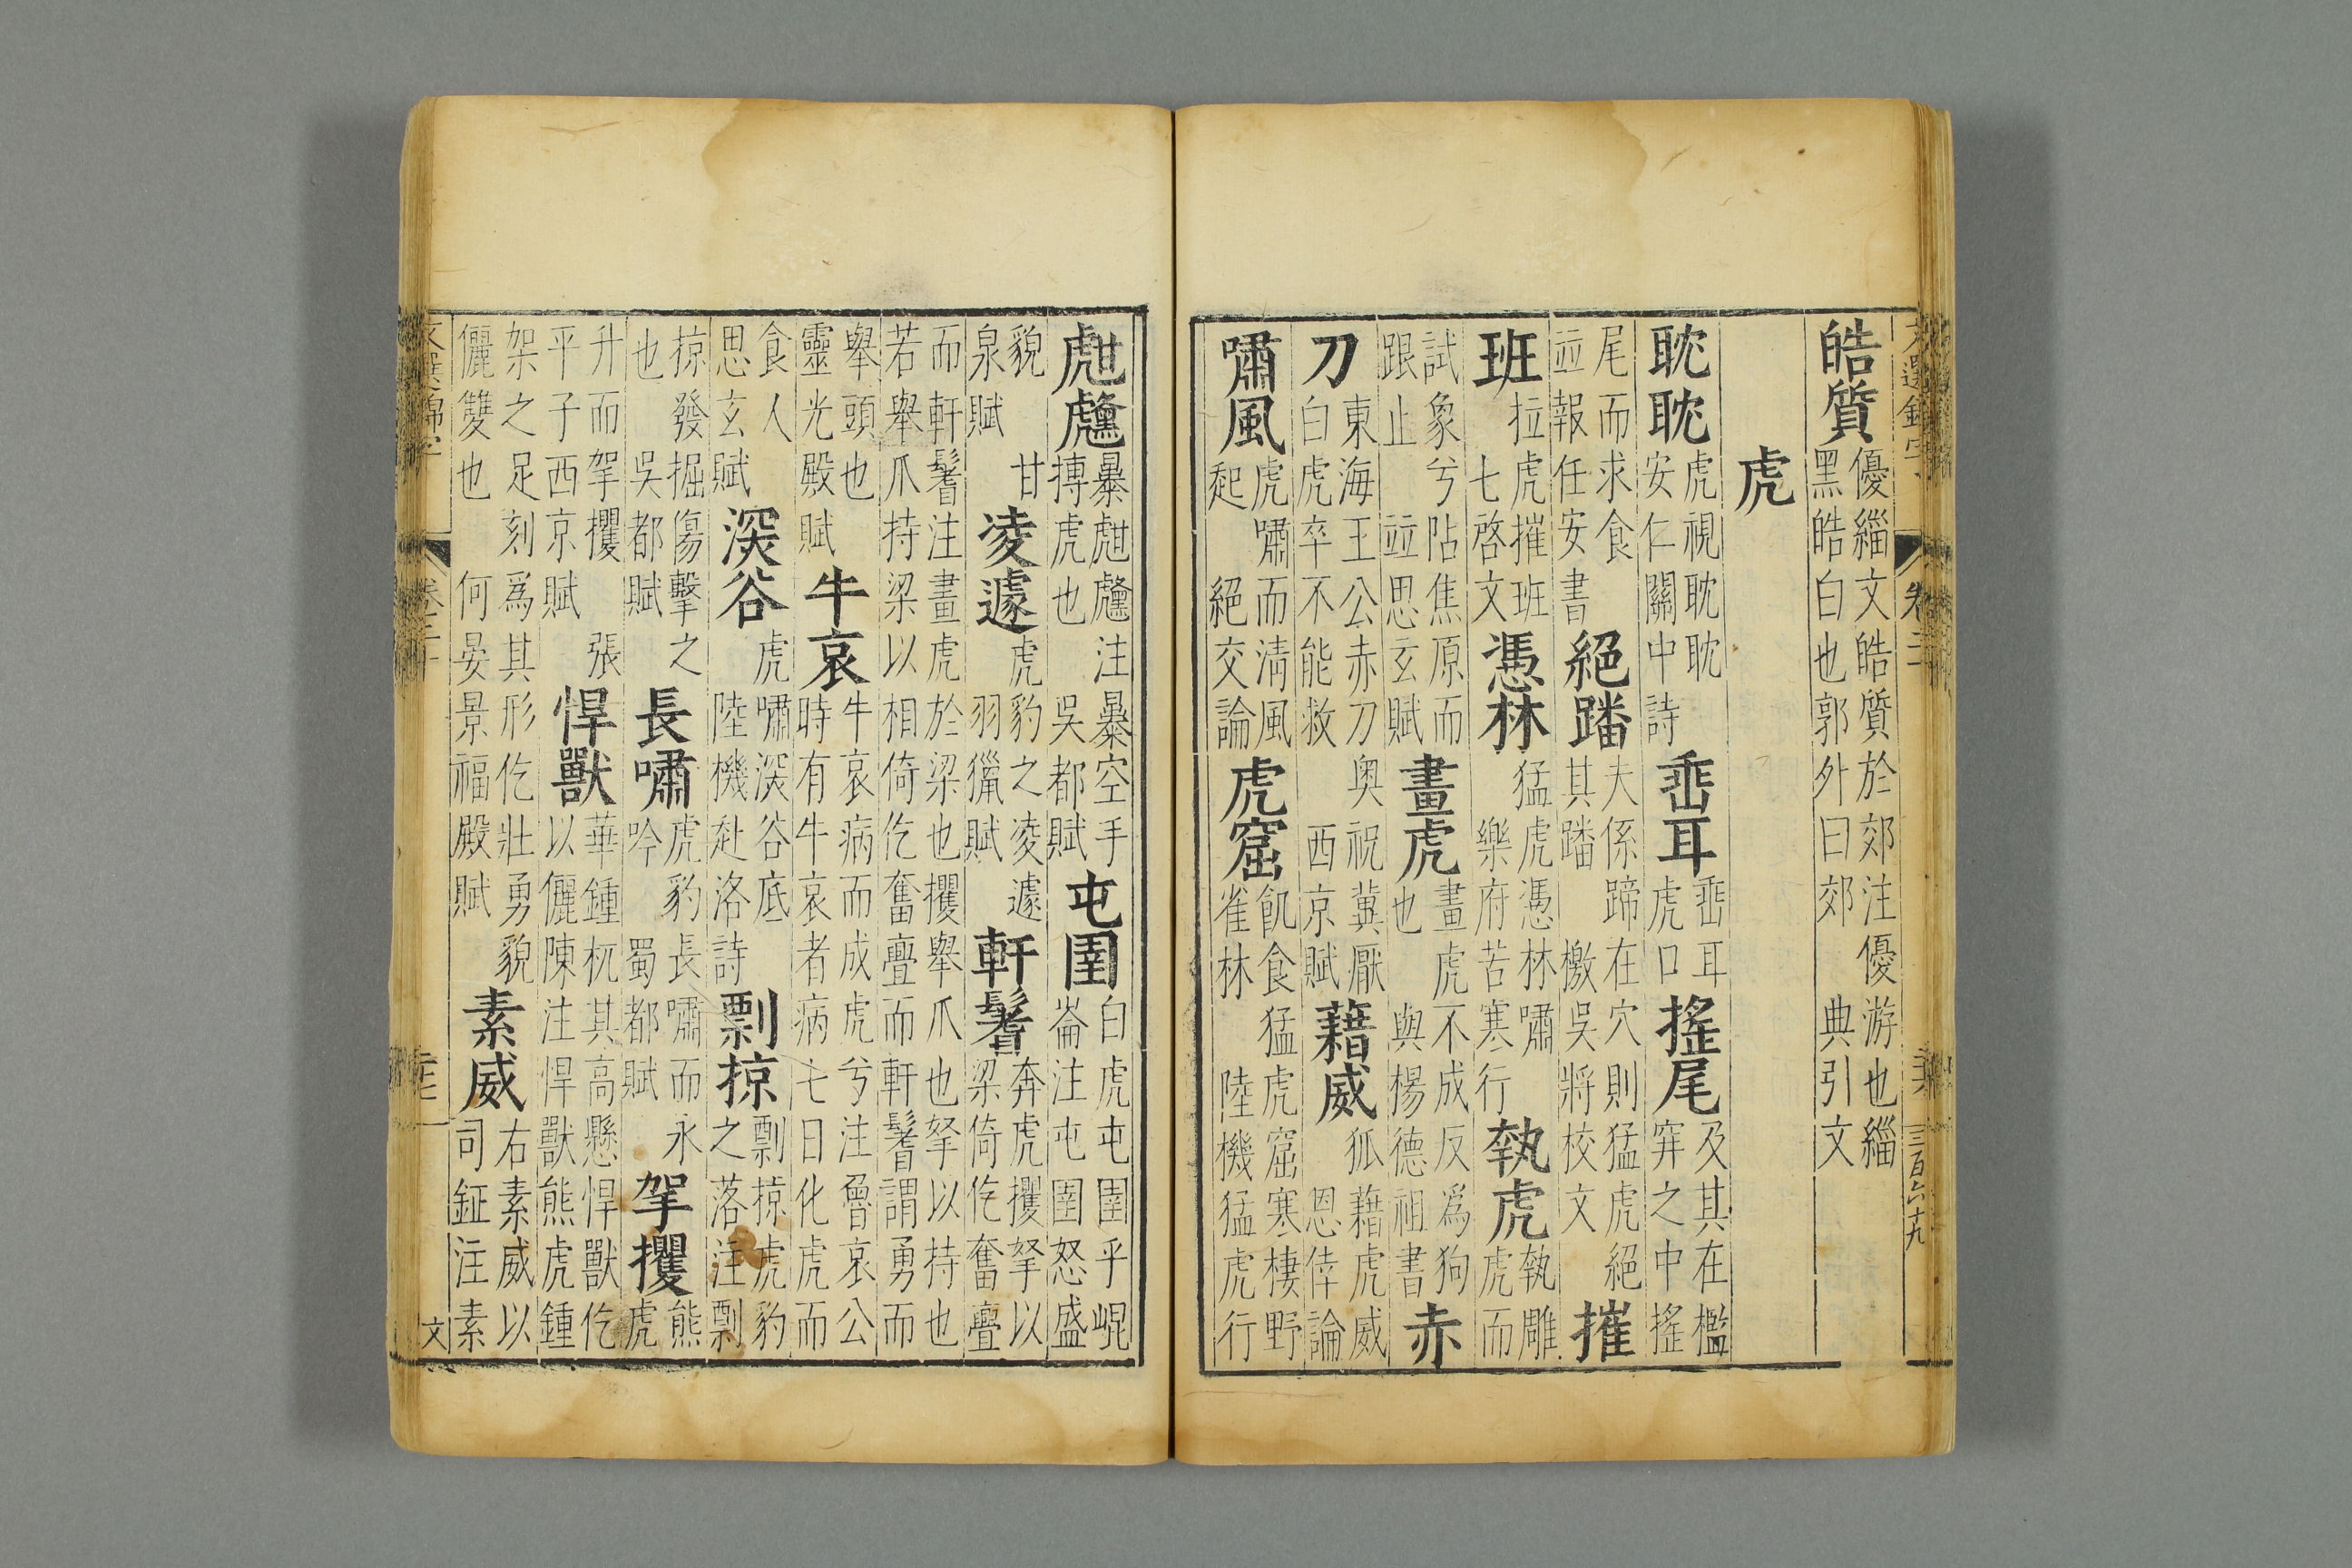 皓質 優緇文皓質於郊注優游也緇黑皓白也郭外曰郊 典引文
虎
耽耽 虎視耽耽 安仁關中詩 垂耳 垂耳虎口 搖尾 及其在檻穽之中搖
尾而求食 並報任安書 絕蹯 夫係蹄在穴則猛虎絕其蹯 檄吳將校文 摧
班 拉虎摧班 七啓文 憑林 猛虎憑林嘯 樂府苦寒行 執虎 執雕虎而
試象兮阽焦原而跟止 並思玄賦 畫虎 畫虎不成反爲狗也 與楊德祖書 赤
刀 東海王公赤刀奧祝冀厭白虎卒不能救 西京賦 藉威 狐藉虎威 恩倖論
嘯風 虎嘯而淸風起 絕交論 虎窟 飢食猛虎窟寒棲野雀林 陸機猛虎行
三百六十九
甝虪 暴甝虪注暴空手搏虎也 吳都賦 屯圉 白虎屯圉乎崐崙注屯圉怒盛
貌 甘泉賦 凌遽 虎豹之凌遽 羽獵賦 軒鬐 奔虎攫挐以梁倚仡奮亹
而軒鬐注畫虎於梁也攫舉爪也挐以持也若舉爪持梁以相倚仡奮亹而軒鬐謂勇而
舉頭也 靈光殿賦 牛哀 牛哀病而成虎兮注魯哀公時有牛哀者病七日化虎而
食人 思玄賦 深谷 虎嘯深谷底 陸機赴洛詩 剽掠 剽掠虎豹之落注剽
掠發掘傷擊之也 吳都賦 長嘯 虎豹長嘯而永吟 蜀都賦 挐攫 熊虎
升而挐攫 張平子西京賦 悍獸 華鍾杌其高懸悍獸仡以儷陳注悍獸熊虎鍾
架之足刻爲其形仡壯勇貌儷雙也 何晏景福殿賦 素威 右素威以司鉦注素
文